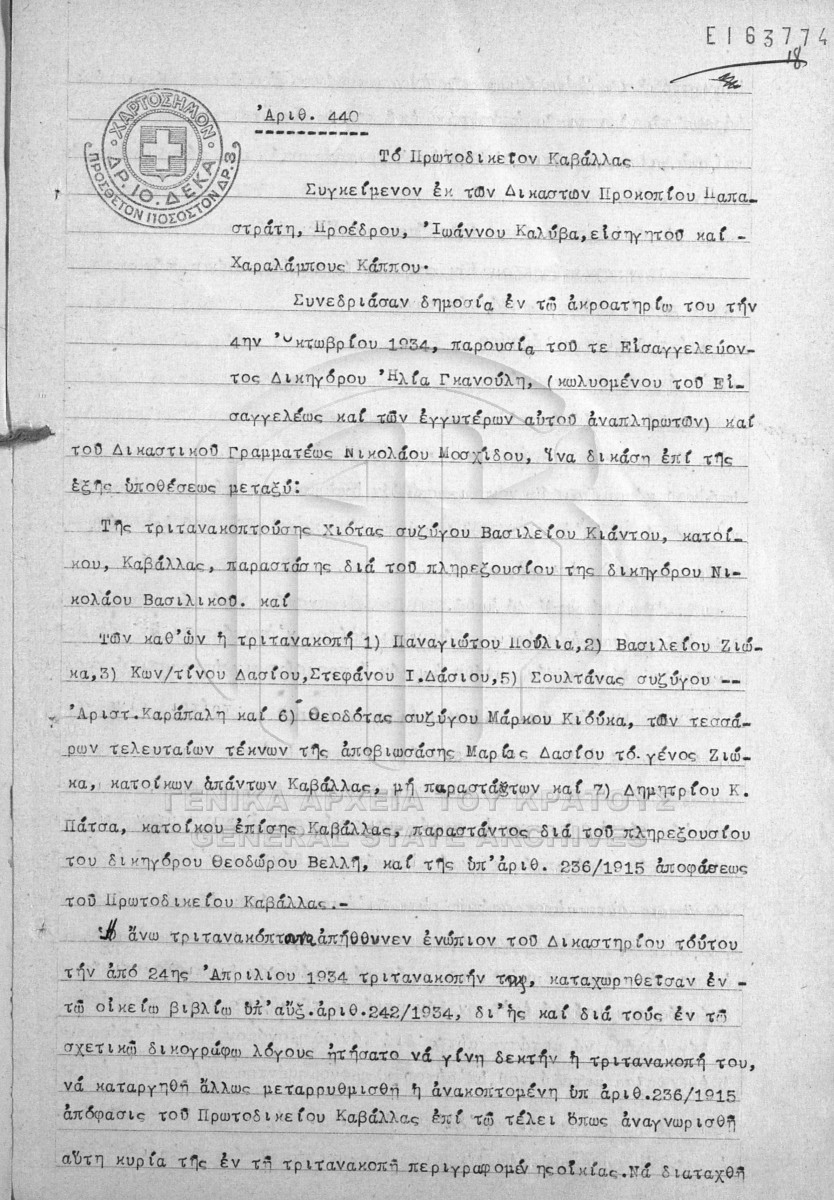 Ε163774
18
Ἀριθ. 440
ΧΑΡΤΟΣΗΜΟΝ
ΔΡ. 10. ΔΕΚΑ
ΠΡΟΣΘΕΤΟΝ ΠΟΣΟΣΤΟΝ ΔΡ. 3
Τό Πρωτοδικεῖον Καβάλλας
Συγκείμενον ἐκ τῶν Δικαστῶν Προκοπίου Παπα-
στράτη, Προέδρου, Ἰωάννου Καλύβα,εἰσηγητοῦ καί -
Χαραλάμπους Κάππου.
Συνεδριάσαν δημοσίᾳ ἐν τῶ ἀκροατηρίω του τήν
4ην Ὀκτωβρίου 1934, παρουσίᾳ τοῦ τε Εἰσαγγελεύον-
τος Δικηγόρου Ἠλία Γκανούλη, (κωλυομένου τοῦ Εἰ-
σαγγελέως καί τῶν ἐγγυτέρων αὐτοῦ ἀναπληρωτῶν) καί
τοῦ Δικαστικοῦ Γραμματέως Νικολάου Μοσχίδου, ἵνα δικάση ἐπί τῆς
ἑξῆς ὑποθέσεως μεταξύ:
Τῆς τριτανακοπτούσης Χιότας συζύγου Βασιλείου Κιάντου, κατοί-
κου, Καβάλλας, παραστάσης διά τοῦ πληρεξουσίου της δικηγόρου Νι-
κολάου Βασιλικοῦ. καί
Τῶν καθ'ὧν ἡ τριτανακοπή 1) Παναγιώτου Πούλια,2) Βασιλείου Ζιώ-
κα,3) Κων/τίνου Δασίου,Στεφάνου Ι.Δάσιου,5) Σουλτάνας συζύγου --
Ἀριστ.Καράπαλη καί 6) Θεοδότας συζύγου Μάρκου Κιούκα, τῶν τεσσά-
ρων τελευταίων τέκνων τῆς ἀποβιωσάσης Μαρίας Δασίου τό γένος Ζιώ-
κα, κατοίκων ἁπάντων Καβάλλας, μή παραστάντων καί 7) Δημητρίου Κ.
ΓΕΝΙΚΑ ΑΡΧΕΙΑ ΤΟΥ ΚΡΑΤΟΥΣ
Πάτσα, κατοίκου ἐπίσης Καβάλλας, παραστάντος διά τοῦ πληρεξουσίου
GENERAL STATE ARCHIVES
του δικηγόρου Θεοδώρου Βελλῆ, καί τῆς ὑπ'ἀριθ. 236/1915 ἀποφάσεως
τοῦ Πρωτοδικείου Καβάλλας.-
Ἡ ἄνω τριτανακόπτουσα ἀπηύθυνεν ἐνώπιον τοῦ Δικαστηρίου τούτου
τήν ἀπό 24ης Ἀπριλίου 1934 τριτανακοπήν της, καταχωρηθεῖσαν ἐν -
τῶ οἰκείω βιβλίω ὑπ'αὔξ.ἀριθ.242/1934, δι'ἧς καί διά τούς ἐν τῶ
σχετικῶ δικογράφω λόγους ἠτήσατο νά γίνη δεκτήν ἡ τριτανακοπή του,
νά καταργηθῆ ἄλλως μεταρρυθμισθῆ ἡ ἀνακοπτομένη ὑπ ἀριθ.236/1915
ἀπόφασις τοῦ Πρωτοδικείου Καβάλλας ἐπί τῶ τέλει ὅπως ἀναγνωρισθῆ
αὕτη κυρία τῆς ἐν τῆ τριτανακοπῆ περιγραφομένης οἰκίας.Νά διαταχθῆ